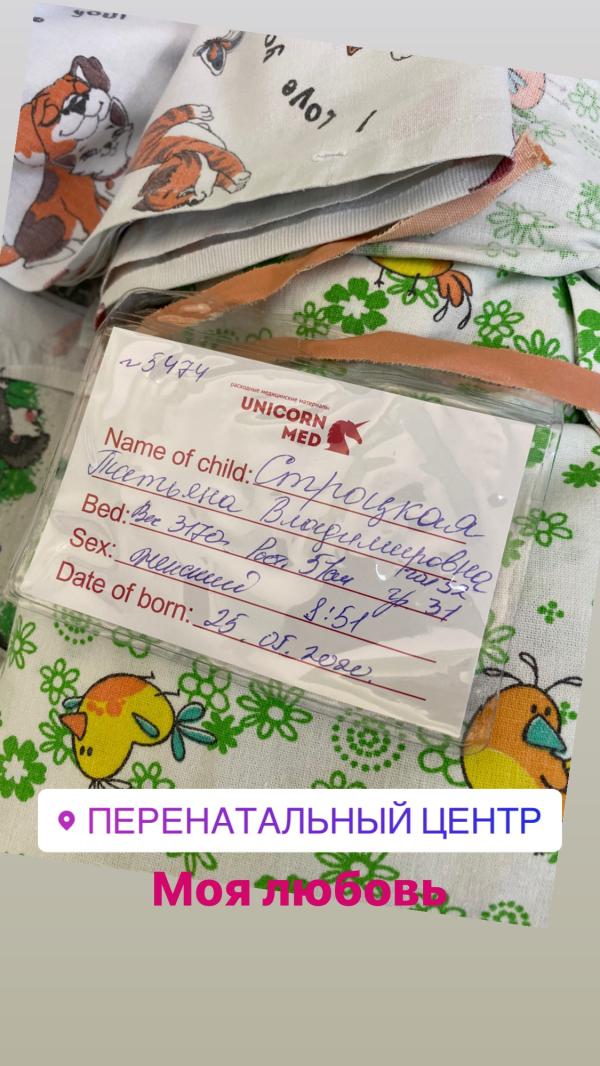 you!
I love
№5474
расходные медицинские материалы
UNICORN
MED
Name of child: Строцкая
Татьяна Владимировна
Bed: Вес 3170 Рост 51см гр 31
Sex: женский 8:51
Date of born: 25.05.2020
ПЕРЕНАТАЛЬНЫЙ ЦЕНТР
Моя любовь